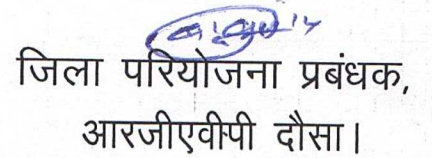 जिला परियोजना प्रबंधक,
आरजीएवीपी दौसा।